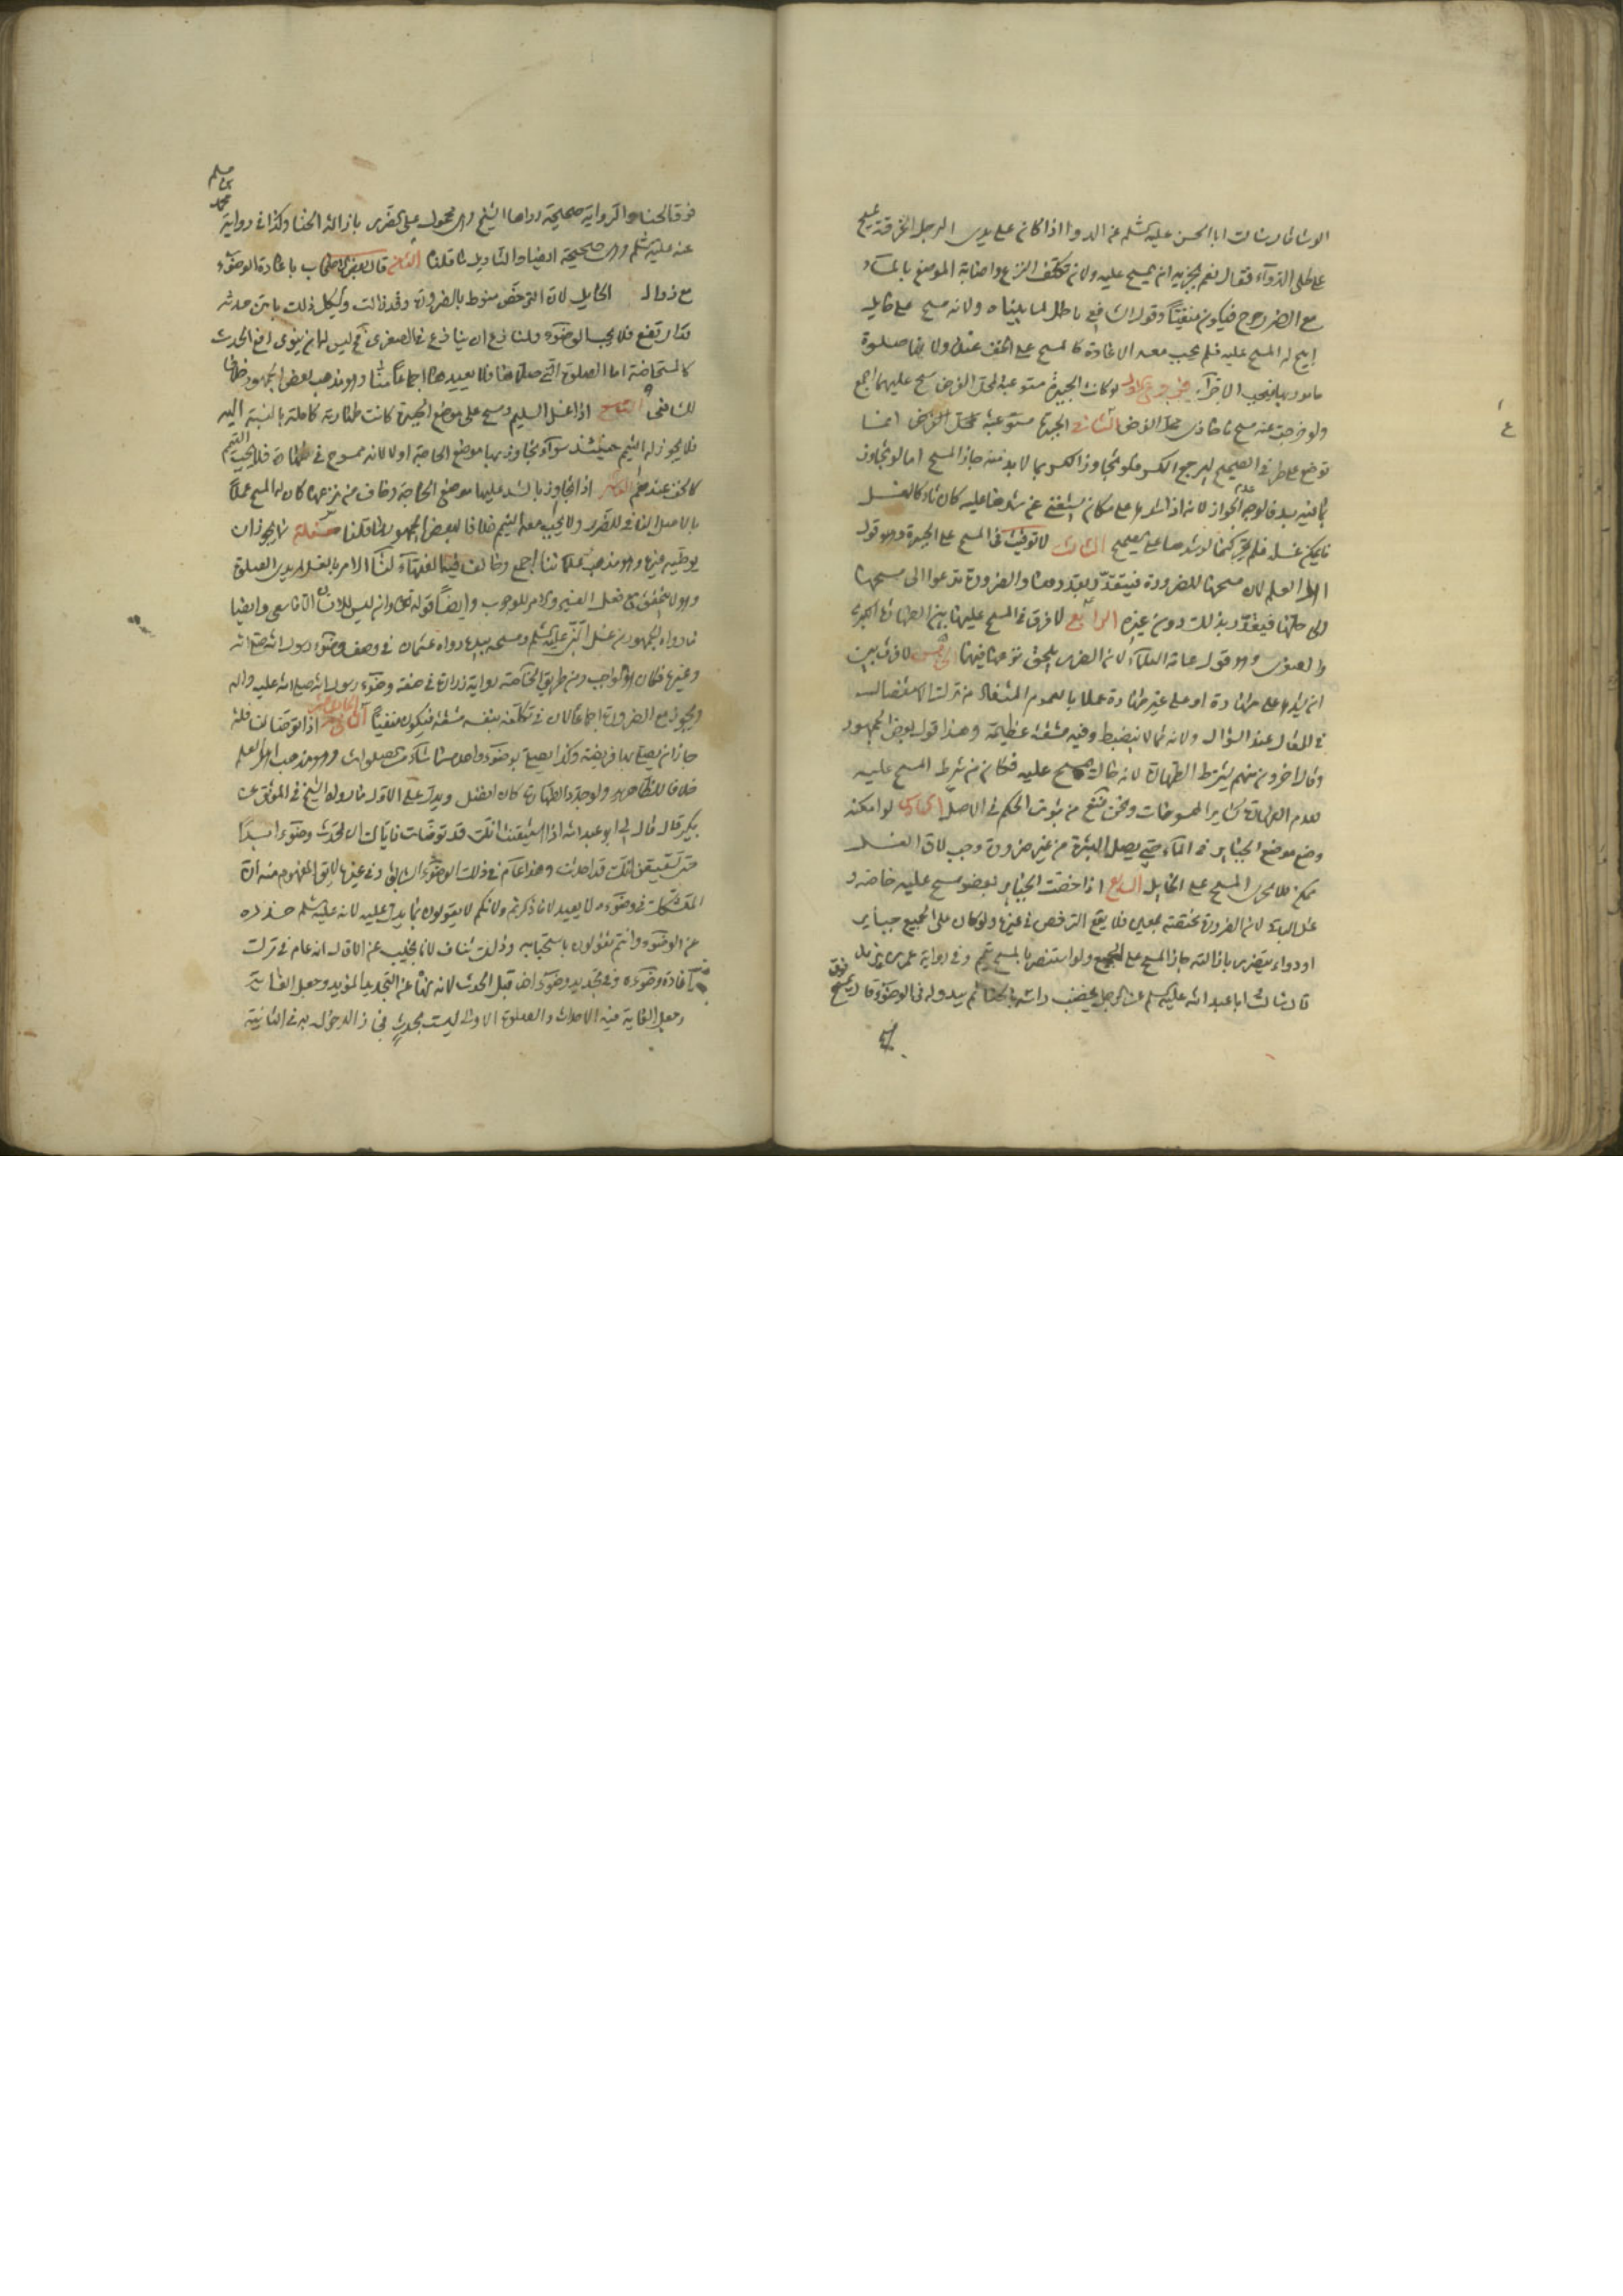 الوشا قال سالت ابا الحسن عليه السلم عن الدواء اذا كان على يدى الرجل ايجزيه ان يمسح
على طلى الدوآء فقال نعم يجزيه ان يمسح عليه ولان تكلف النزع واصابة الموضع بالمآء
مع الضرر حرج فيكون منفيًا وقول الشافعى باطل لما بيناه ولانه مسح على حايل
ابيح له المسح عليه فلم يجب معه الاعادة كالمسح على الخف عنده ولانها صلوة
مامور بها فيجب الاجزآء فروع الاول لو كانت الجبيرة مستوعبة لمحل الفرض مسح عليها اجمع
ولو خرجت عنه مسح ما حاذى محل الفرض الثانى الجبيرة مستوعبة محل الفرض انما
توضع على طرفى الصحيح ليرجع الكسر فلو تجاوز الكسر بما لابد منه جاز المسح اما لو تجاوز
بما منه بد فالوجه عدم الجواز لانه اذا شدها على مكان يستغنى عن شدها عليه كان تاركا لغسل
ما يمكن غسله فلم يجز كما لو شدها على صحيح الثالث لا توقيت فى المسح على الجبيرة وهو قول
اهل العلم لان مسحها للضرورة فيتقدر بقدرها والضرورة تدعوا الى مسحها
الى حلها فيقدر بذلك دون غيره الرابع لا فرق فى المسح عليها بين الطهارة الكبرى
والصغرى وهو قول عامة العلمآء لان الضرر يلحق بنزعها فيهما الخامس لا فرق بين
ان يشدها على طهارة او على غير طهارة عملا بالعموم المستفاد من ترك الاستفصال
فى المقال عند السؤال ولانه مما لا ينضبط وفيه مشقة عظيمة وهذا قول بعض الجمهور
وقال اخرون منهم يشترط الطهارة لانه حايل مسح عليه فكان من شرط المسح عليه
تقدم الطهارة كساير الممسوحات ونحن نمنع من ثبوت الحكم فى الاصل السادس لو امكنه
وضع موضع الجباير فى المآء حتى يصل البشرة من غير ضرورة وجب لان الغسل
ممكن فلا يجزى المسح على الحايل السابع اذا اختصت الجباير بعضو مسح عليه خاصة و
غسل الباقى لان الضرورة مختصة بمعين فلا يقع الترخص فى غيرها ولو كان على الجميع جباير
او دواء يتضرر بازالته جاز المسح على الجميع ولو استضر بالمسح تيمم وفى رواية عمر بن يزيد
قال سالت ابا عبد الله عليه السلم عن الرجل يخضب راسه بالحنا ثم يبدو له فى الوضوء قال يمسح فوق
فوق الحناء والرواية صحيحة رواها الشيخ وهى محمولة على تضرر بازالة الحنا وكذا فى رواية محمد بن مسلم
عنه عليه السلم وهى صحيحة ايضا والتاويل ما قلنا الثامن قال بعض الاصحاب باعادة الوضوء
مع زوال الحايل لان الترخص منوط بالضرورة وقد زالت ويشكل ذلك بان حدثه
قد ارتفع فلا يجب الوضوء ولمنازع ان ينازع فى الصغرى فح ليس له ان ينوى رفع الحدث
كالمستحاضة اما الصلوة التى صلاها فلا يعيدها اجماعًا منا وهو مذهب بعض الجمهور خلافا
للشافعى التاسع اذا غسل السليم ومسح على موضع الجبيرة كانت طهارته كاملة بالنسبة اليه
فلا يجوز له التيمم حينئذ سوآء تجاوز بها موضع الحاجة او لا لانه ممسوح فى طهارة فلا يجب له التيمم
كالخف عندهم العاشر اذا تجاوز بالشد عليها موضع الحاجة وخاف من نزعها كان له المسح عملًا
بالاصل النافى للضرر ولا يجب معه التيمم خلافا لبعض الجمهور لما قلناه مسئلة لا يجوز ان
يوضيه غيره وهو مذهب علمائنا اجمع وخالف فيه الفقهآء لنا الامر بالغسل لمريدى الصلوة
وهو لا يتحقق مع فعل الغير والامر للوجوب وايضًا قوله تعالى وان ليس للانسان الا ما سعى وايضا
ما رواه الجمهور من غسل النبى عليه السلم ومسحه بيده رواه عثمان فى وصف وضوء رسول الله صلى الله
وغيرها فكان هو الواجب ومن طريق الخاصة رواية زرارة فى صفة وضوء رسول الله صلى الله عليه واله
ويجوز مع الضرورة اجماعًا لان فى تكلفه بنفسه مشقة فيكون منفيًا الحادى عشر اذا توضا لنافلة
جاز ان يصلى بها فريضة وكذا يصلى بوضوء واحد ما شاء من الصلوات وهو مذهب اهل العلم
خلافا للظاهرية ولو جدد الطهارة كان افضل ويدل على الاول ما رواه الشيخ فى الموثق عن
بكير قال قال لى ابو عبد الله اذا استيقنت انك قد توضات فاياك ان تحدث وضوء ابدًا
حتى تستيقن انك قد احدثت وهذا عام فى ذلك الوضوء السابق وفى غيره لا يق المفهوم منه ان
المتشكك فى وضوءه لا يعيد لانا ذكرتم ولانكم لا تقولون بما يدل عليه لانه عليه السلم حذره
عن الوضوء وانتم تقولون باستحبابه وذلك تناف لانا نجيب عن الاول انه عام فى ترك
اعادة وضوءه وفى تجديد وضوء اخر قبل الحدث لانه نهاه عن التجديد المؤبد وجعل الغاية
وجعل الغاية فيه الاحداث والصلوة الاولى ليست بحدث فجاز الدخول به فى الثانية